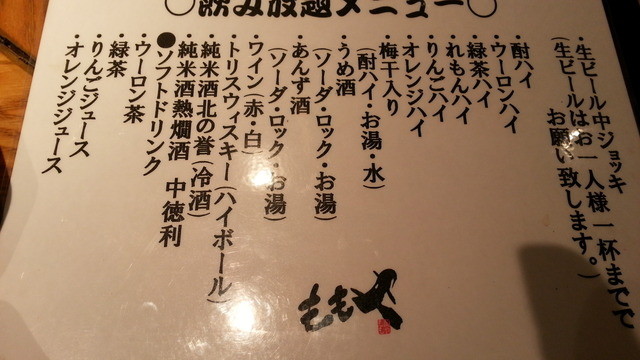 ○飲み放題メニュー○
・生ビール中ジョッキ
(生ビールはお一人様一杯までで
お願い致します。)
・酎ハイ
・ウーロンハイ
・緑茶ハイ
・れもんハイ
・りんごハイ
・オレンジハイ
・梅干入り
(酎ハイ・お湯・水)
・うめ酒
(ソーダ・ロック・お湯)
・あんず酒
(ソーダ・ロック・お湯)
・ワイン(赤・白)
・トリスウィスキー(ハイボール)
・純米酒北の誉(冷酒)
・純米酒熱燗酒 中徳利
●ソフトドリンク
・ウーロン茶
・緑茶
・りんごジュース
・オレンジジュース